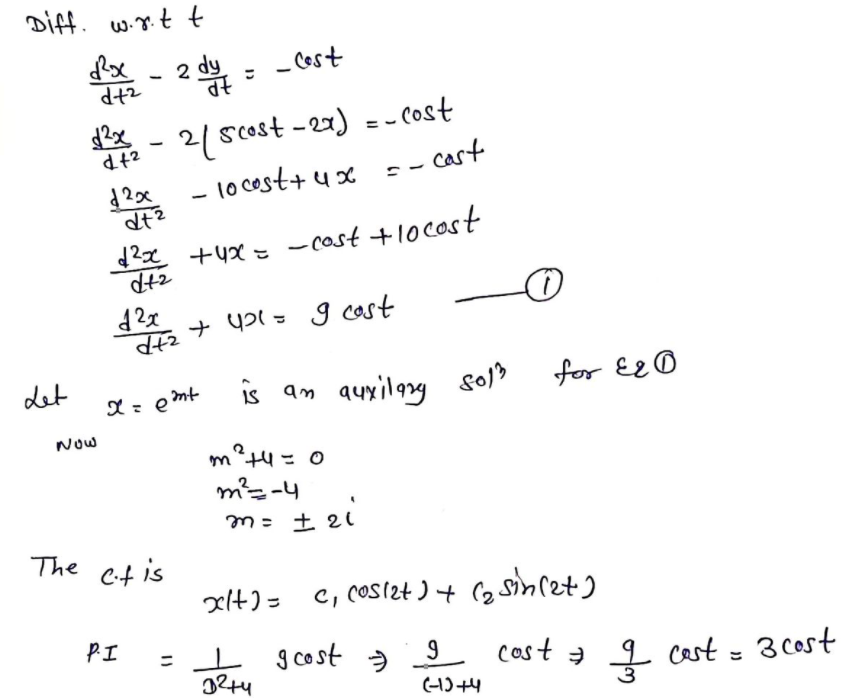 Diff. w.r.t t
d²x/dt² - 2 dy/dt = - cost
d²x/dt² - 2(5cost - 2x) = - cost
d²x/dt² - 10cost + 4x = - cost
d²x/dt² + 4x = - cost + 10cost
d²x/dt² + 4x = 9 cost —— ①
Let x = e^mt is an auxilary sol^n for Eq ①
Now
m² + 4 = 0
m² = -4
m = ± 2i
The C.f is
x(t) = c₁ cos(2t) + c₂ sin(2t)
P.I = 1/(D²+4) 9cost ⇒ 9/((-1)+4) cost ⇒ 9/3 cost = 3cost